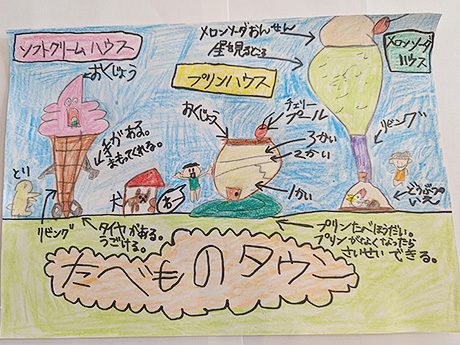 ソフトクリームハウス
おくじょう
手がある。
まもってくれる。
とり
リビング
タイヤがある。
うごける。
犬
プリンハウス
おくじょう
チェリー
プール
3かい
2かい
1かい
プリンたべほうだい。
プリンがなくなったら
さいせいできる。
メロンソーダおんせん
星を見るところ
メロンソーダ
ハウス
リビング
どうぶつの
いえ
たべものタウン